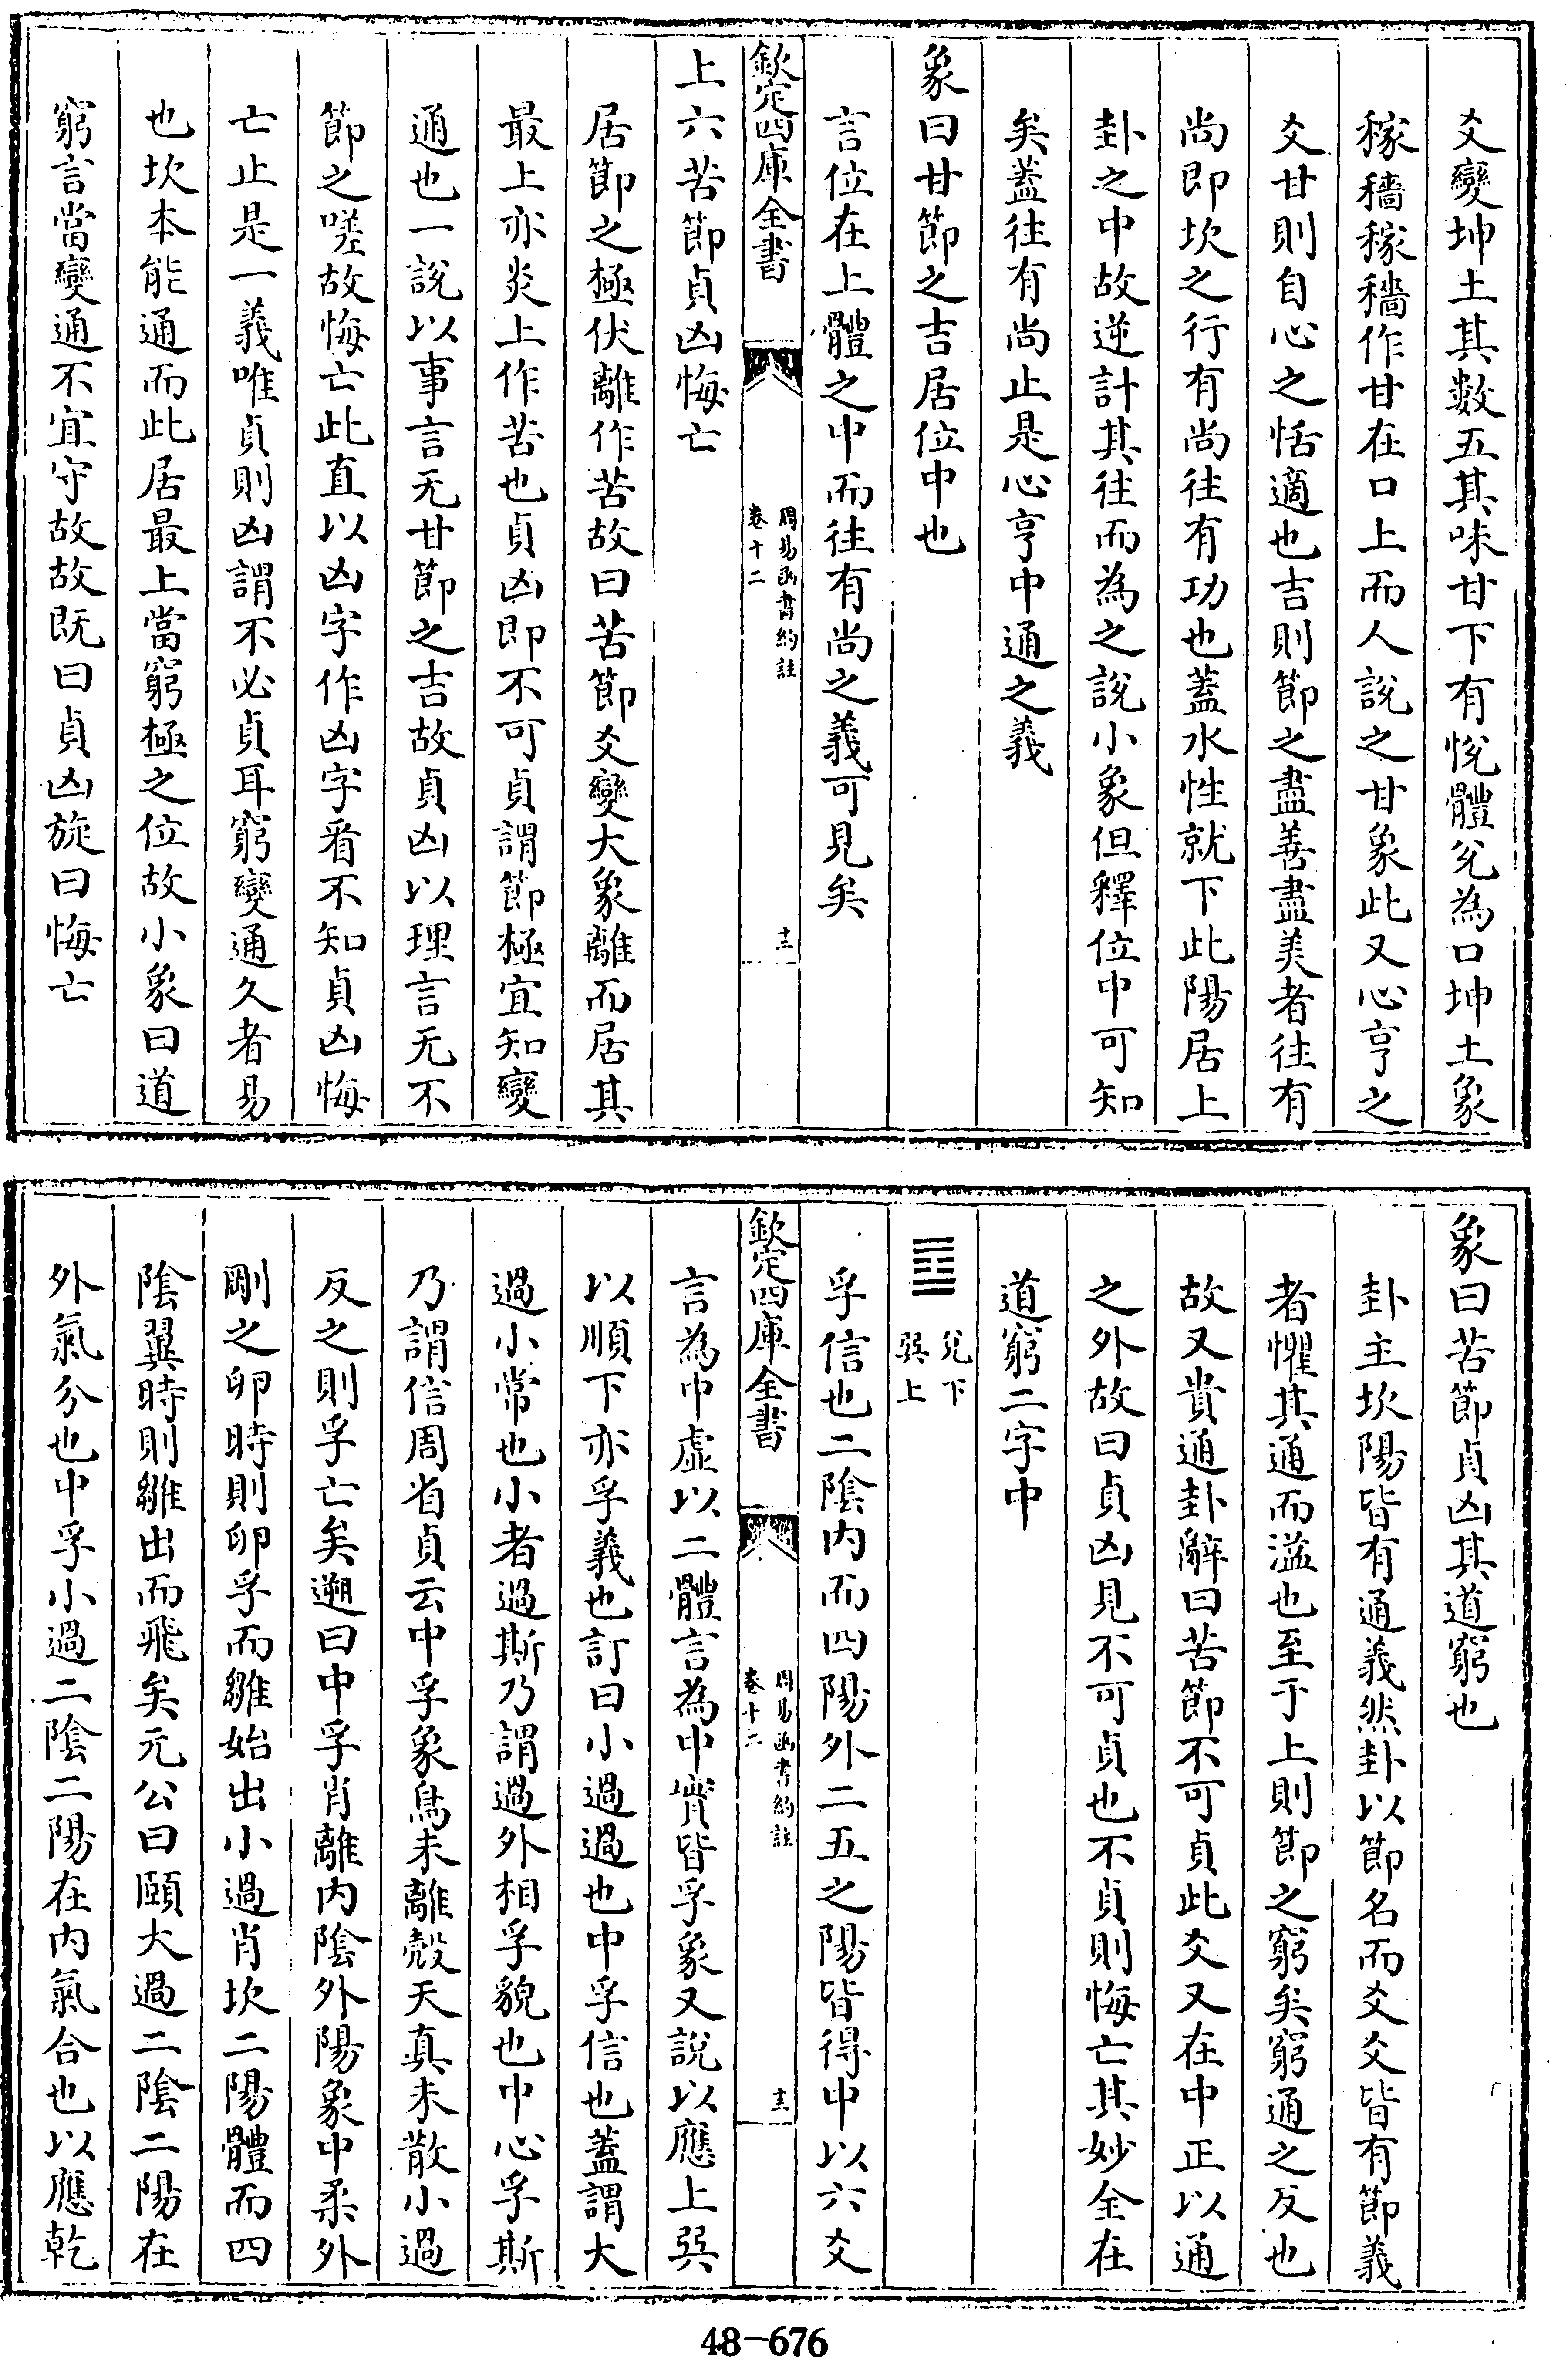 爻變坤土其數五其味甘下有悅體兌為口坤土象
稼穡稼穡作甘在口上而人說之甘象此又心亨之
爻甘則自心之恬適也吉則節之盡善盡美者往有
尚即坎之行有尚往有功也蓋水性就下此陽居上
卦之中故逆計其往而為之說小象但釋位中可知
矣蓋往有尚止是心亨中通之義
象曰甘節之吉居位中也
言位在上體之中而往有尚之義可見矣
欽定四庫全書
周易函書約註
卷十二
十二
上六苦節貞凶悔亡
居節之極伏離作苦故曰苦節爻變大象離而居其
最上亦炎上作苦也貞凶即不可貞謂節極宜知變
通也一說以事言无甘節之吉故貞凶以理言无不
節之嗟故悔亡此直以凶字作凶字看不知貞凶悔
亡止是一義唯貞則凶謂不必貞耳窮變通久者易
也坎本能通而此居最上當窮極之位故小象曰道
窮言當變通不宜守故故既曰貞凶旋曰悔亡
象曰苦節貞凶其道窮也
卦主坎陽皆有通義然卦以節名而爻爻皆有節義
者懼其通而溢也至于上則節之窮矣窮通之反也
故又貴通卦辭曰苦節不可貞此爻又在中正以通
之外故曰貞凶見不可貞也不貞則悔亡其妙全在
道窮二字中
䷼
兌下
巽上
孚信也二陰內而四陽外二五之陽皆得中以六爻
欽定四庫全書
周易函書約註
卷十二
十三
言為中虛以二體言為中實皆孚象又說以應上巽
以順下亦孚義也訂曰小過過也中孚信也蓋謂大
過小常也小者過斯乃謂過外相孚貌也中心孚斯
乃謂信周省貞云中孚象鳥未離殼天真未散小過
反之則孚亡矣遡曰中孚肖離內陰外陽象中柔外
剛之卵時則卵孚而雛始出小過肖坎二陽體而四
陰翼時則雛出而飛矣元公曰頤大過二陰二陽在
外氣分也中孚小過二陰二陽在內氣合也以應乾
48-676